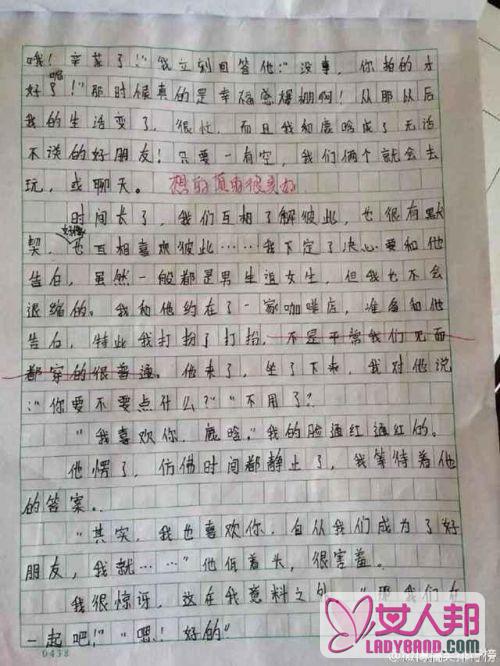 哦！辛苦了！"我立刻回答他："没事，你拍的才
好了！"那时候真的是幸福感爆棚啊！从那以后
我的生活变了，很忙，而且我和鹿晗成了无话
不说的好朋友！只要一有空，我们俩个就会去
玩，或聊天。想的真的很美好
时间长了，我们互相了解彼此，也很有默
契，好像也互相喜欢彼此……我下定了决心要和他
告白，虽然一般都是男生追女生，但我也不会
退缩的。我和他约在了一家咖啡店，准备和他
告白，特此我打扮了打扮，不是平常我们见面
都穿的很普通。他来了，坐了下来，我对他说
："你要不要点什么？""不用了？
"我喜欢你，鹿晗。"我的脸通红通红的。
他愣了，仿佛时间都静止了，我等待着他
的答案。
"其实，我也喜欢你，自从我们成为了好
朋友，我就……"他低着头，很害羞。
我很惊讶，这在我意料之外。"那我们在
一起吧！""嗯！好的"
0438
女人邦
LADYBAND.COM